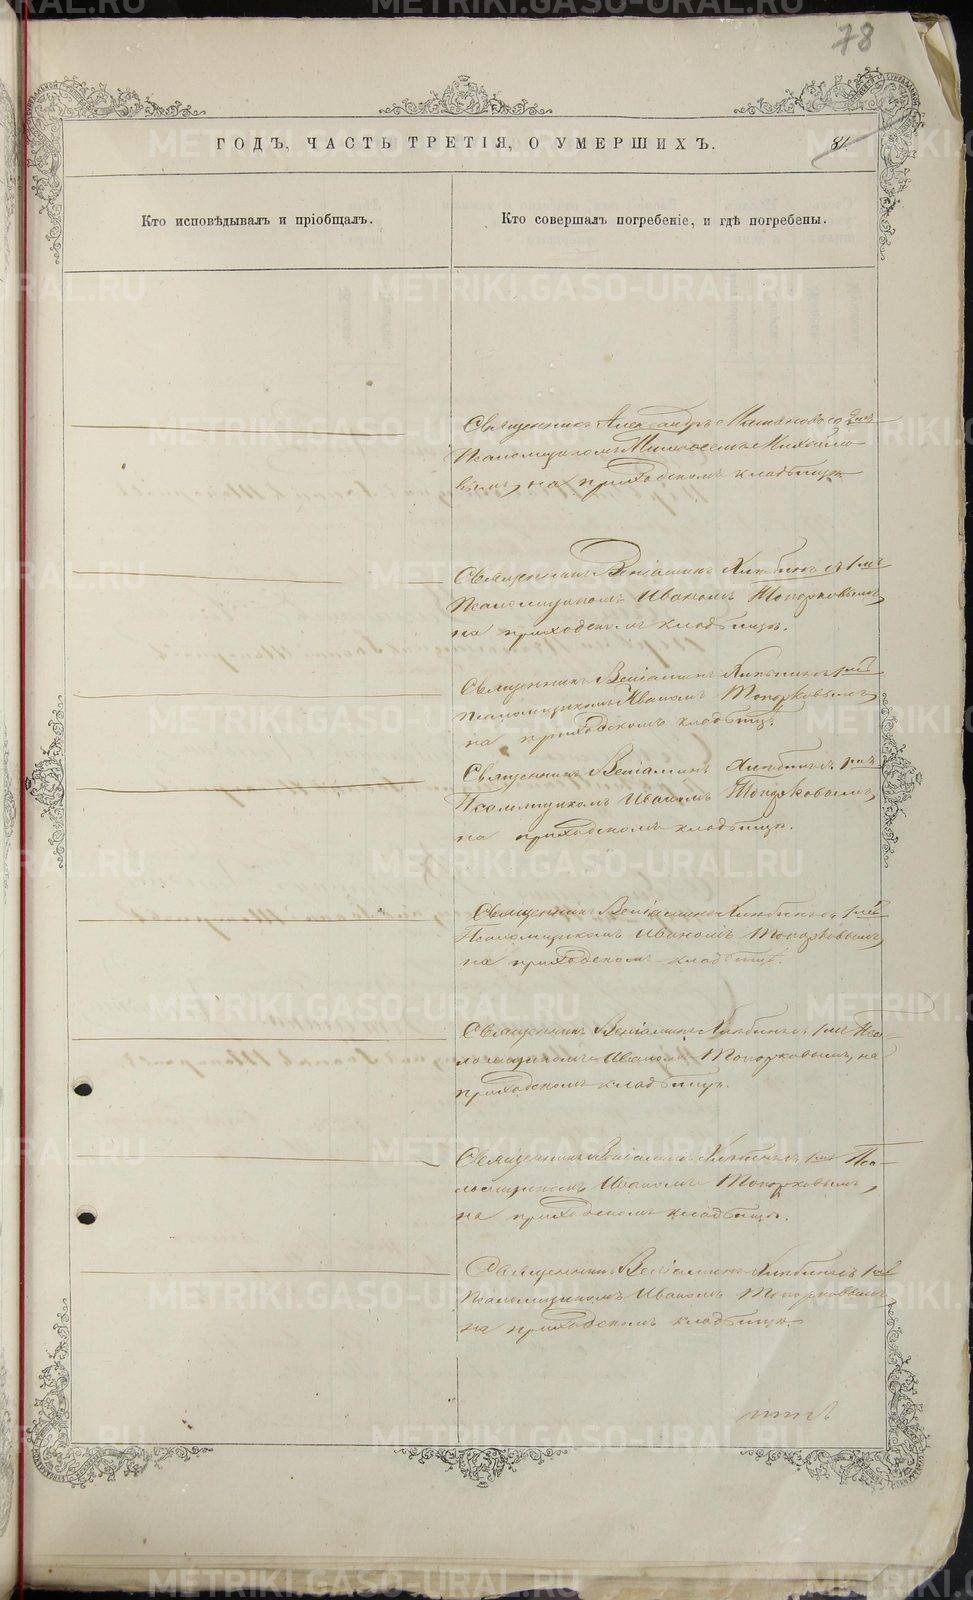 78
ГОДЪ, ЧАСТЬ ТРЕТІЯ, О УМЕРШИХЪ.
81
Кто исповѣдывалъ и пріобщалъ.
Кто совершалъ погребеніе, и гдѣ погребены.
Священникъ Александръ со 2мъ
Псаломщикомъ Михайло-
вымъ, на приходскомъ кладбищѣ
Священникъ Веніаминъ Хлѣбинъ съ 1мъ
Псаломщикомъ Иваномъ Топорковымъ,
на приходскомъ кладбищѣ.
Священникъ Веніаминъ Хлѣбинъ 1мъ
псаломщикомъ Иваномъ Топорковымъ,
на приходскомъ кладбищѣ.
Священникъ Веніаминъ Хлѣбинъ с. 1мъ
Псаломщикомъ Иваномъ Топорковымъ,
на приходскомъ кладбищѣ.
Священникъ Веніаминъ Хлѣбинъ съ 1мъ
Псаломщикомъ Иваномъ Топорковымъ,
на приходскомъ кладбищѣ.
Священникъ Веніаминъ Хлѣбинъ съ 1мъ Пса-
ломщикомъ Иваномъ Топорковымъ, на
приходскомъ кладбищѣ.
Священникъ Веніаминъ Хлѣбинъ съ 1мъ Пса-
ломщикомъ Иваномъ Топорковымъ,
на приходскомъ кладбищѣ.
Священникъ Веніаминъ Хлѣбинъ съ 1мъ
Псаломщикомъ Иваномъ Топорковымъ
на приходскомъ кладбищѣ.
METRIKI.GASO-URAL.RU